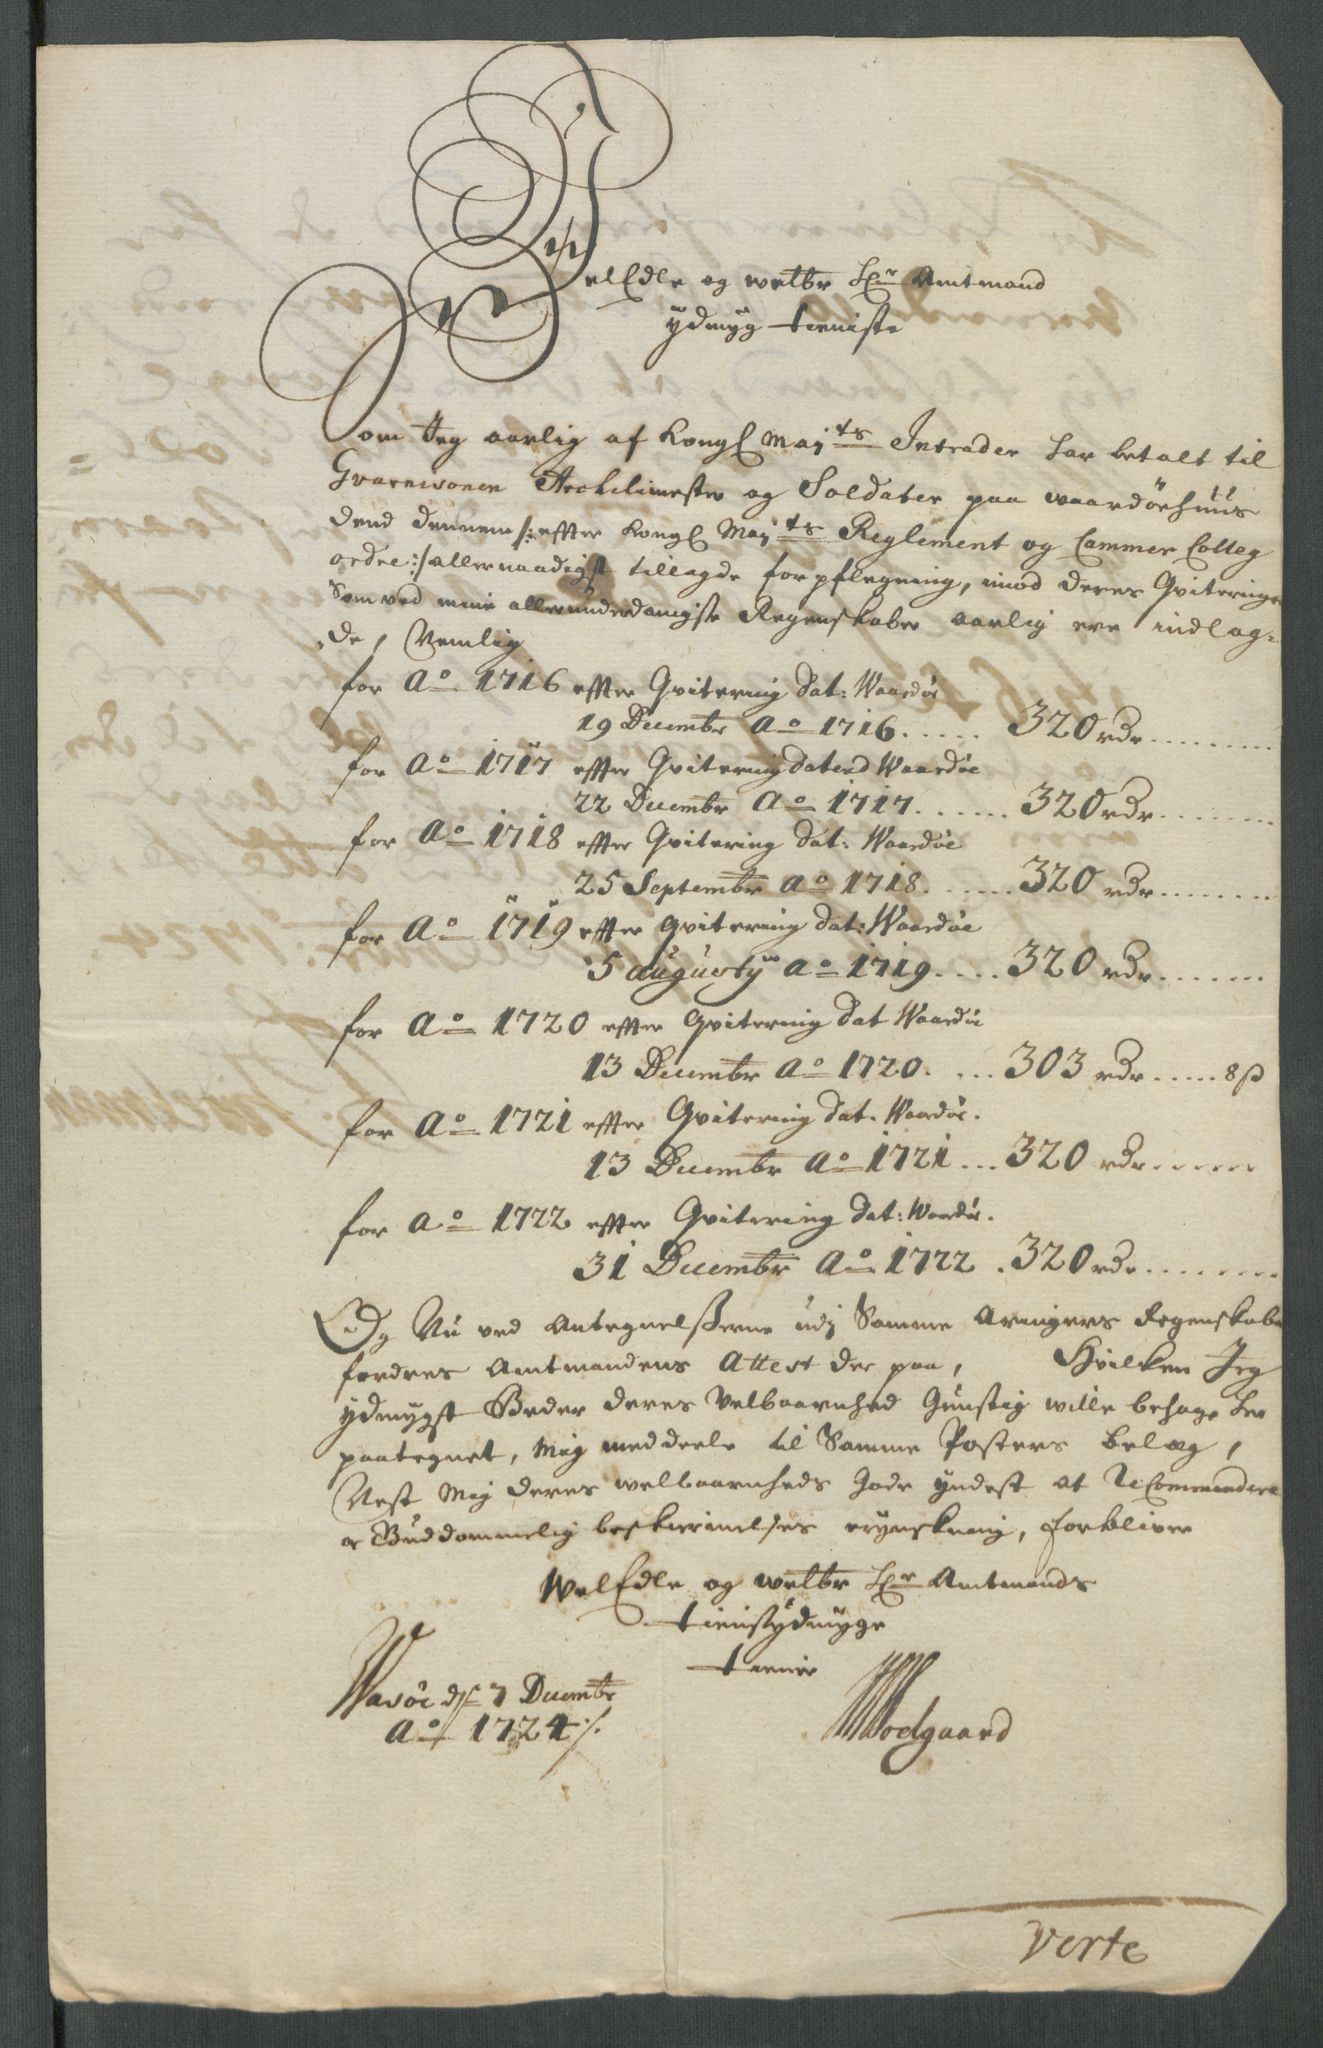 WelEdle og welbr Hr Amtmand
ydmyg tieniste
Som Jeg aarlig af Kongl Mayts Intrader har betalt til
Gvarnisonen Archlimester og Soldater paa waardöehuus
dend dennem /: effter Kongl Mayts Reglement og Cammer Colleg
ordre :/ allernaadigst tillagde forpflegning, imod deres Qvitering
Som ved mine allerunderdanigste Regenskaber aarlig ere indlag-
de, Nemlig
for Ao 1716 effter Qvitering dat: Waardöe
19 Decembr Ao 1716 ...... 320 rdr ........
for Ao 1717 effter Qvitering daterd Waardöe
22 Decembr Ao 1717 ...... 320 rdr ........
for Ao 1718 effter Qvitering dat: Waardöe
25 Septembr Ao 1718 ...... 320 rdr ........
for Ao 1719 effter Qvitering dat: Waardöe
5 augusty Ao 1719 .... 320 rdr .......
for Ao 1720 effter Qvitering dat Waardöe
13 Decembr Ao 1720 .... 303 rdr ..... 8 s
for Ao 1721 effter Qvitering dat. Waardöe.
13 Decembr Ao 1721 ... 320 rdr ......
for Ao 1722 effter Qvitering dat: Waardöe.
31 Decembr Ao 1722 . 320 rdr .......
Og Nu ved Antegnelsserne udj Samme Aringers Regenskaber
fordres Amtmandens Attest der paa, Hvilken Jeg
ydmygst Beder deres Velbaarnhed Gunstig wille behage her
paategnet, Mig meddeele til Samme Posters belæg,
Nest Mig deres welbaarnheds gode yndest at ReCommendere
og Guddommelig beskiermelses erynskning, forbliver
WelEdle og welbr Hr Amtmands
tienstydmyge
tiener
Wasöe d 7 Decembr
Ao 1724 /.
Wodgaard
Verte